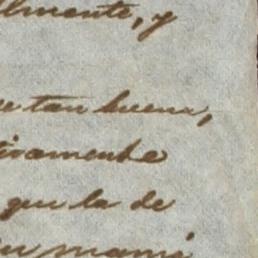 lmente, y
e tan buena,
tivamente
que la de
mamá